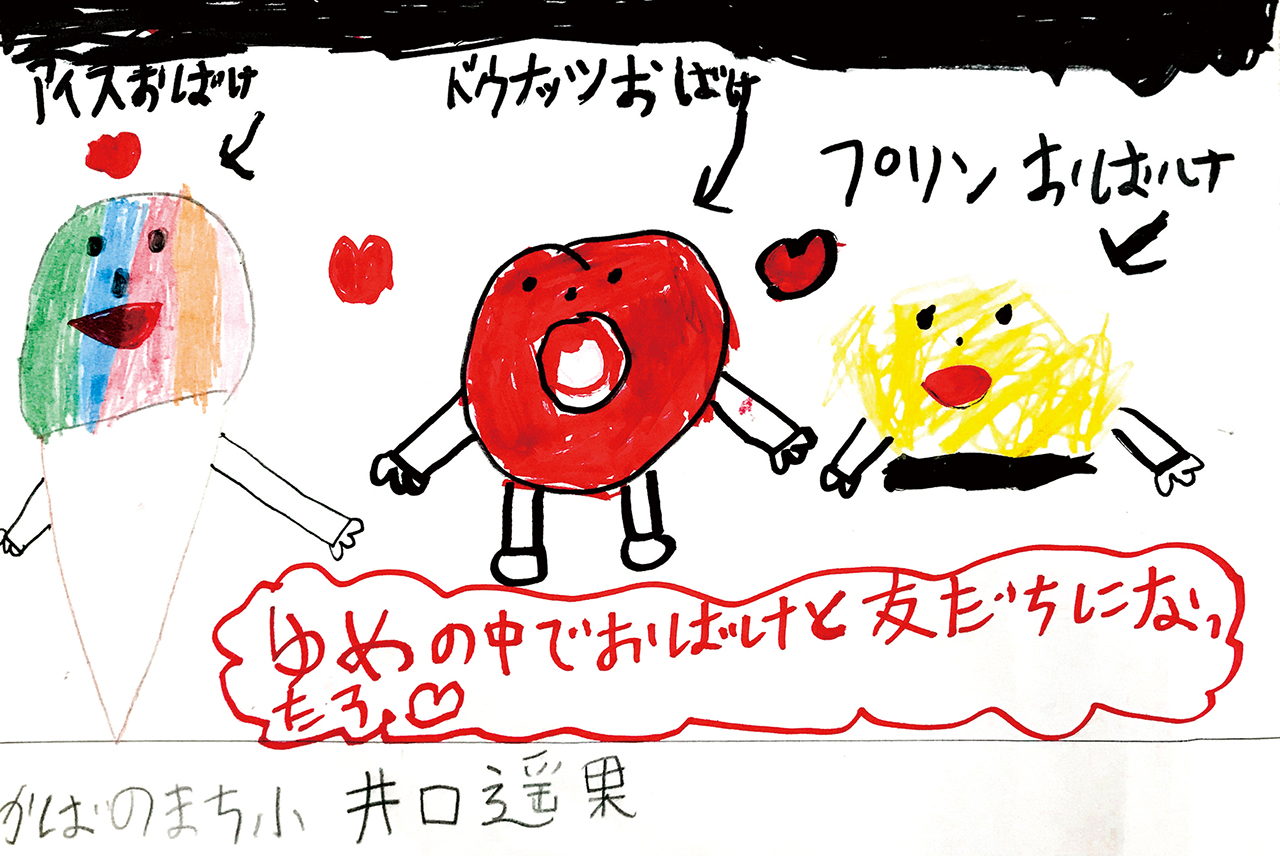 アイスおばけ
ドウナッツおばけ
プリンおばけ
ゆめの中でおばけと友だちになっ
たよ♡
かばのまち小 井口遥果